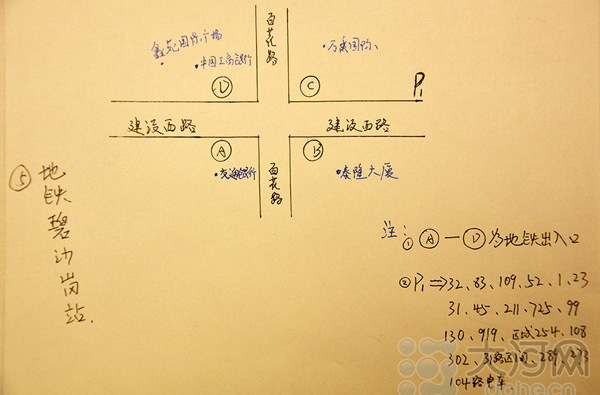 百花路
鑫苑国际广场
·中国工商银行
·万乘国际
D
C
P1
建设西路
建设西路
A
B
·交通银行
百花路
·泰隆大厦
⑤地铁碧沙岗站.
注:①Ⓐ—Ⓓ为地铁出入口
②P1⇒32、83、109、52、1、23
31、45、211、725、99
130、919、区域254、108
302、31路区间、289、273
104路电车
大河网
dahe.cn